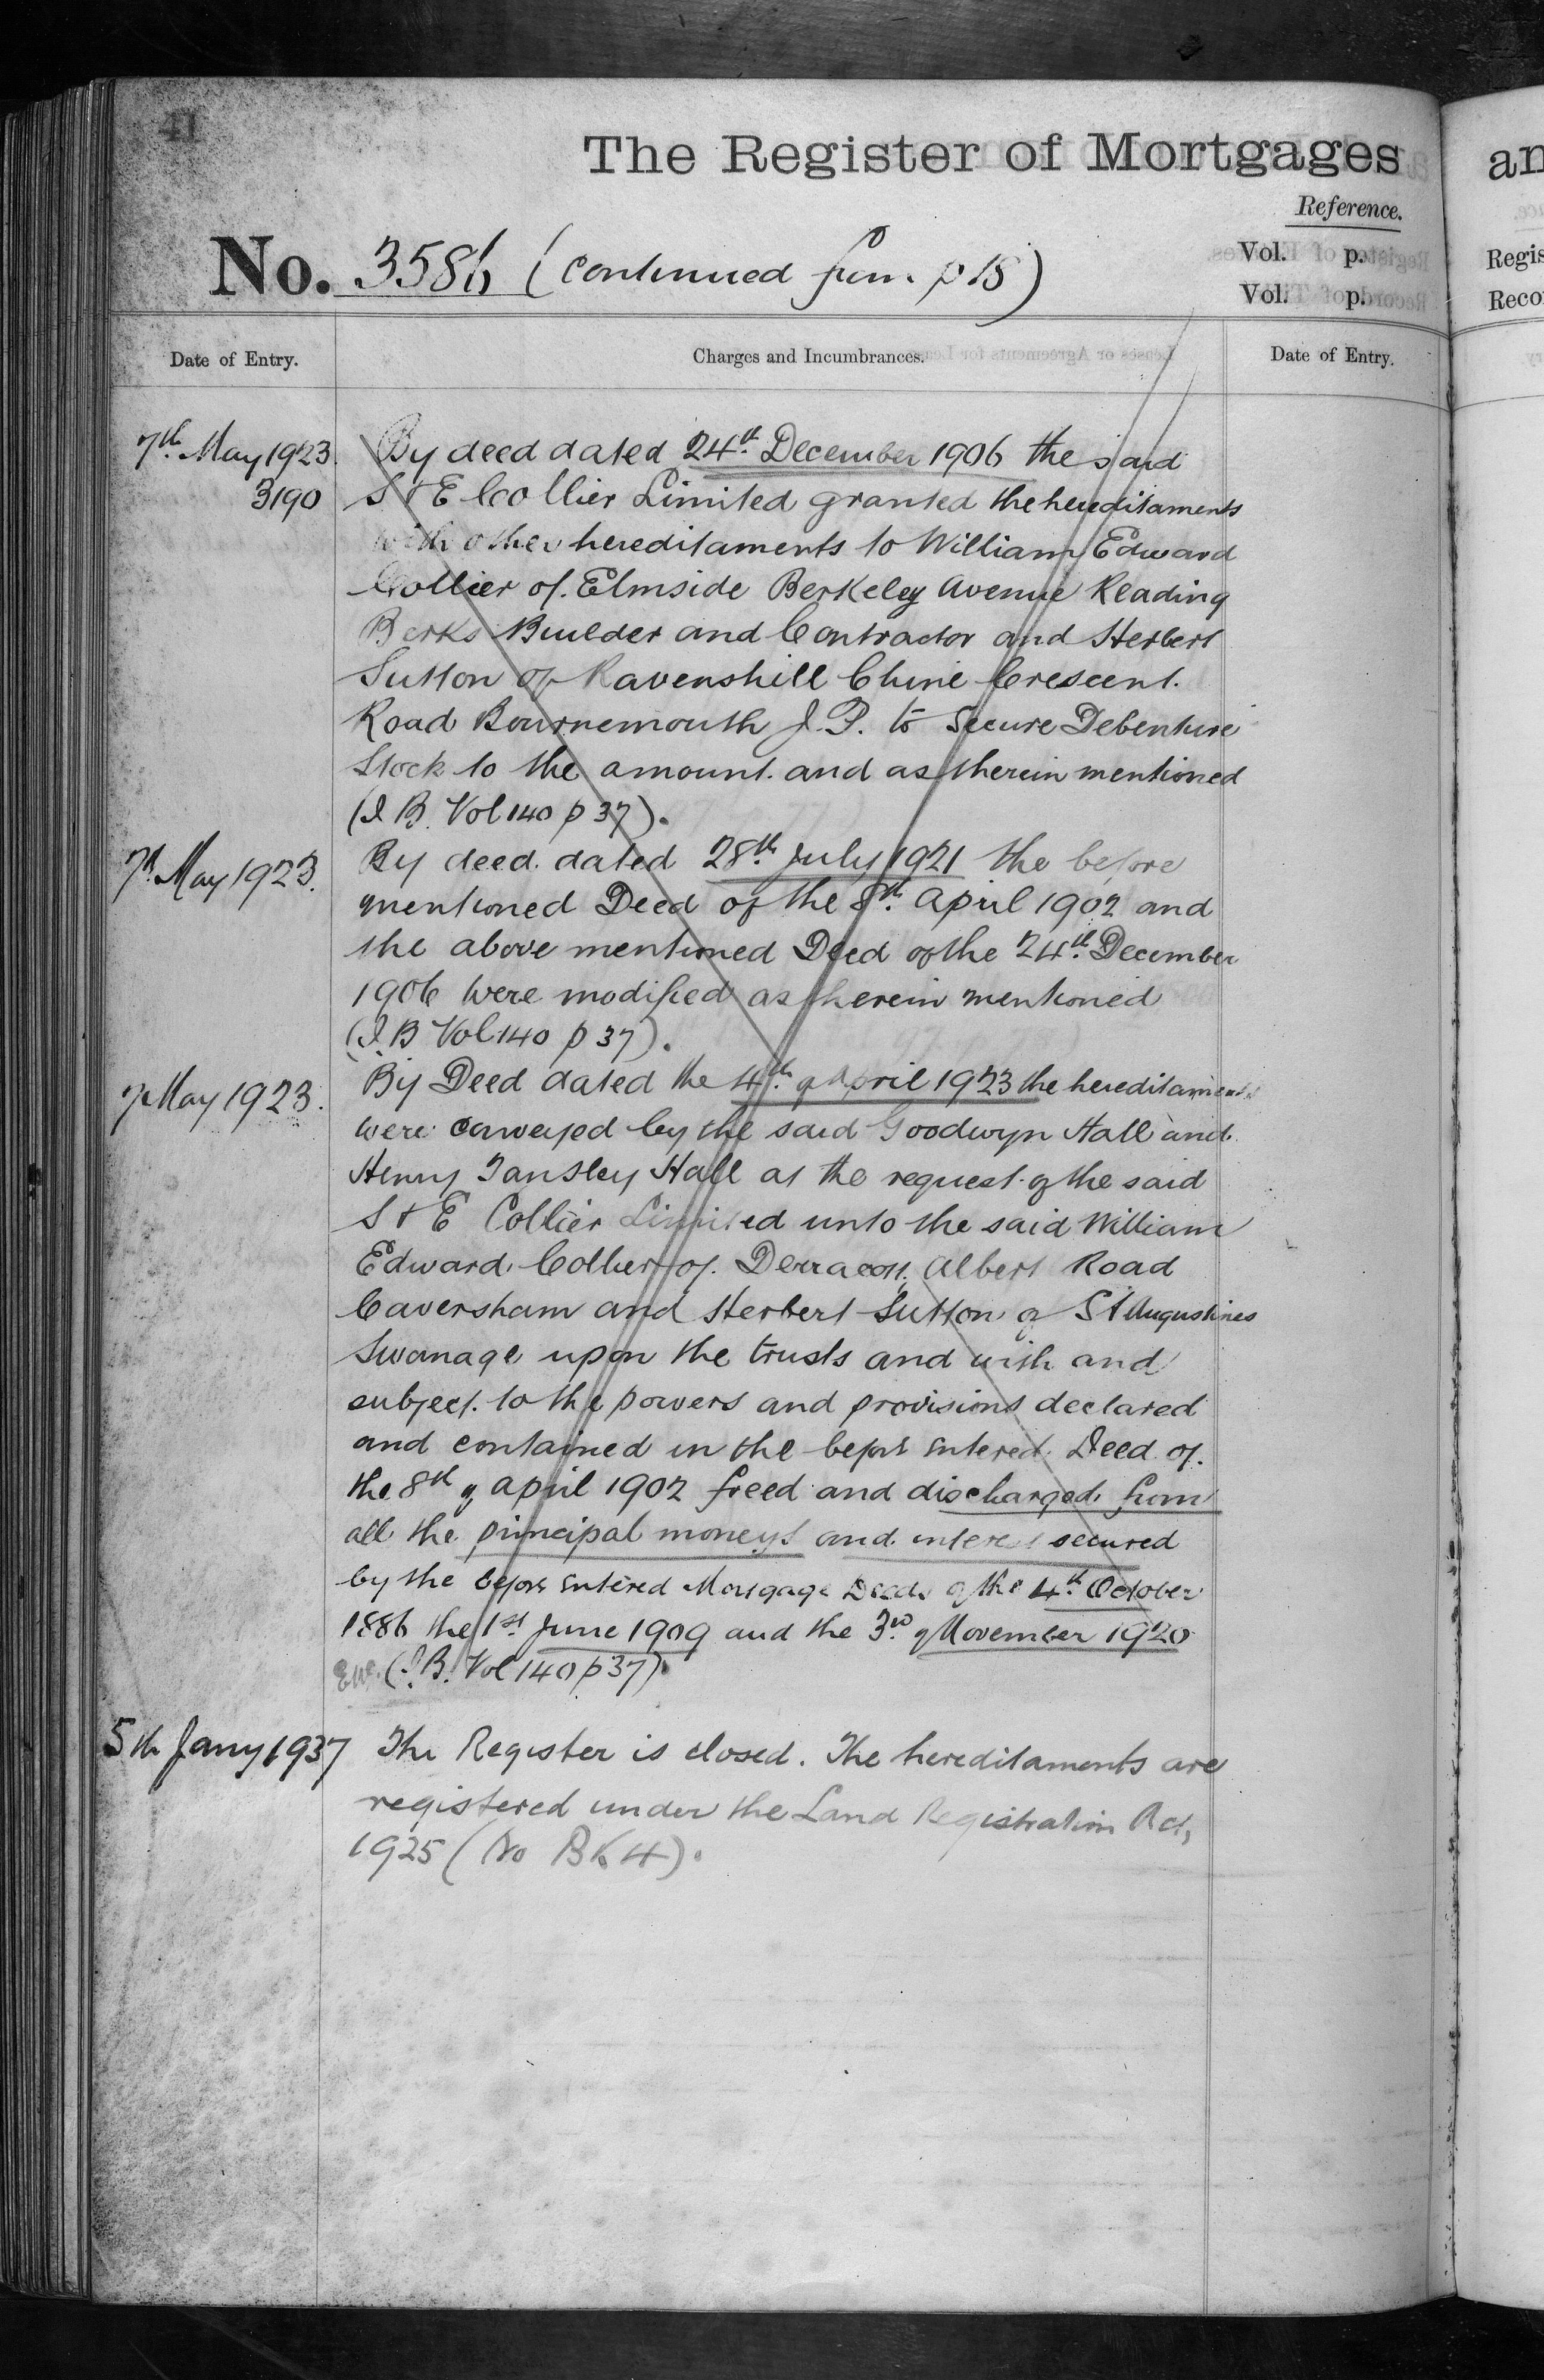 41
The Register of Mortgages
an
Reference.
No. 3586 (continued from p 15)
Vol. p.
Vol. p.
Regis
Recor
Date of Entry.
Charges and Incumbrances.
Date of Entry.
7th May 1923.
3190
By deed dated 24th December 1906 the said
S & E Collier Limited granted the hereditaments
with other hereditaments to William Edward
Collier of Elmside Berkeley Avenue Reading
Berks Builder and Contractor and Herbert
Sutton of Ravenshill Chine Crescent
Road Bournemouth J.P. to secure Debenture
Stock to the amount and as therein mentioned
(I B. Vol 140 p 37).
7th May 1923.
By deed dated 28th July 1921 the before
mentioned Deed of the 8th April 1902 and
the above mentioned Deed of the 24th December
1906 were modified as therein mentioned
(I.B Vol 140 p 37).
7 May 1923.
By Deed dated the 4th of April 1923 the hereditaments
were conveyed by the said Goodwyn Hall and
Henry Tansley Hall at the request of the said
S & E Collier Limited unto the said William
Edward Collier of Albert Road
Caversham and Herbert Sutton of St Augustines
Swanage upon the trusts and with and
subject to the powers and provisions declared
and contained in the before entered Deed of
the 8th of April 1902 freed and discharged from
all the principal moneys and interest secured
by the before entered Mortgage Deeds of the 4th October
1886 the 1st June 1909 and the 3rd of November 1920
(I.B. Vol 140 p 37).
5th Jany 1937
The Register is closed. The hereditaments are
registered under the Land Registration Act,
1925 (No BK 4).